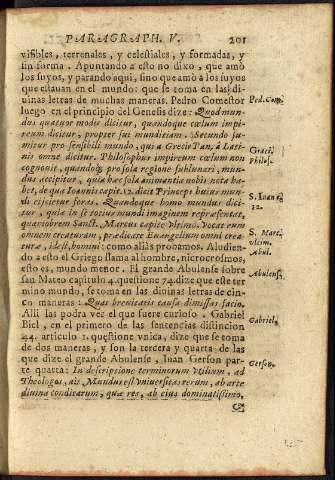 PARAGRAPH. V. 201
visibles, terrenales, y celestiales, y formadas, y
sin forma. Apuntando a esto no dixo, que amò
los suyos, y parando aqui, sino que amò a los suyos
que estauan en el mundo: que se toma en las di-
uinas letras de muchas maneras. Pedro Comestor
luego en el principio del Genesis dize: Quod mun-
dus quatuor modis dicitur, quandoque cœlum impi-
reum dicitur, propter sui munditiam. Secundo su-
mitur pro sensibili mundo, qui a Græcis Pan, à Lati-
nis omne dicitur. Philosophus impireum cœlum non
cognouit, quandoq; pro sola regione sublunari, mun-
dus accipitur, quia hæc sola animantia nobis nota ha-
bet, de qua Ioannis capit. 12. dicit Princeps huius mun-
di eijcietur foras. Quandoque homo mundus dici-
tur, quia in se totius mundi imaginem repræsentat,
Marcus capite vltimo. Vocat eum
omnem creaturam, prædicate Euangelium omni crea-
turæ, id est, homini: como aliàs probamos. Aludien-
do a esto el Griego llama al hombre, microcosmos,
esto es, mundo menor. El grande Abulense sobre
san Mateo capitulo 4. questione 74. dize que este ter
mino mundo, se toma en las diuinas letras de cin-
co maneras: Quas breuitatis causa dimissas facio.
Alli las podra ver el que fuere curioso. Gabriel
Biel, en el primero de las sentencias distincion
44. articulo 1. questione vnica, dize que se toma
de dos maneras, y son la tercera y quarta de las
que dize el grande Abulense, Iuan Gerson par-
te quarta: In descriptione terminorum vtilium, ad
Theologos, ait. Mundus est vniuersitas rerum, ab arte
diuina conditarum, quæ res, ab eius dominatissimo,
&
Ped. Com.
Græci.
philos.
S. Ioan.
12.
S. Marc.
vltim.
Abul.
Abulens.
Gabriel.
Gerson.